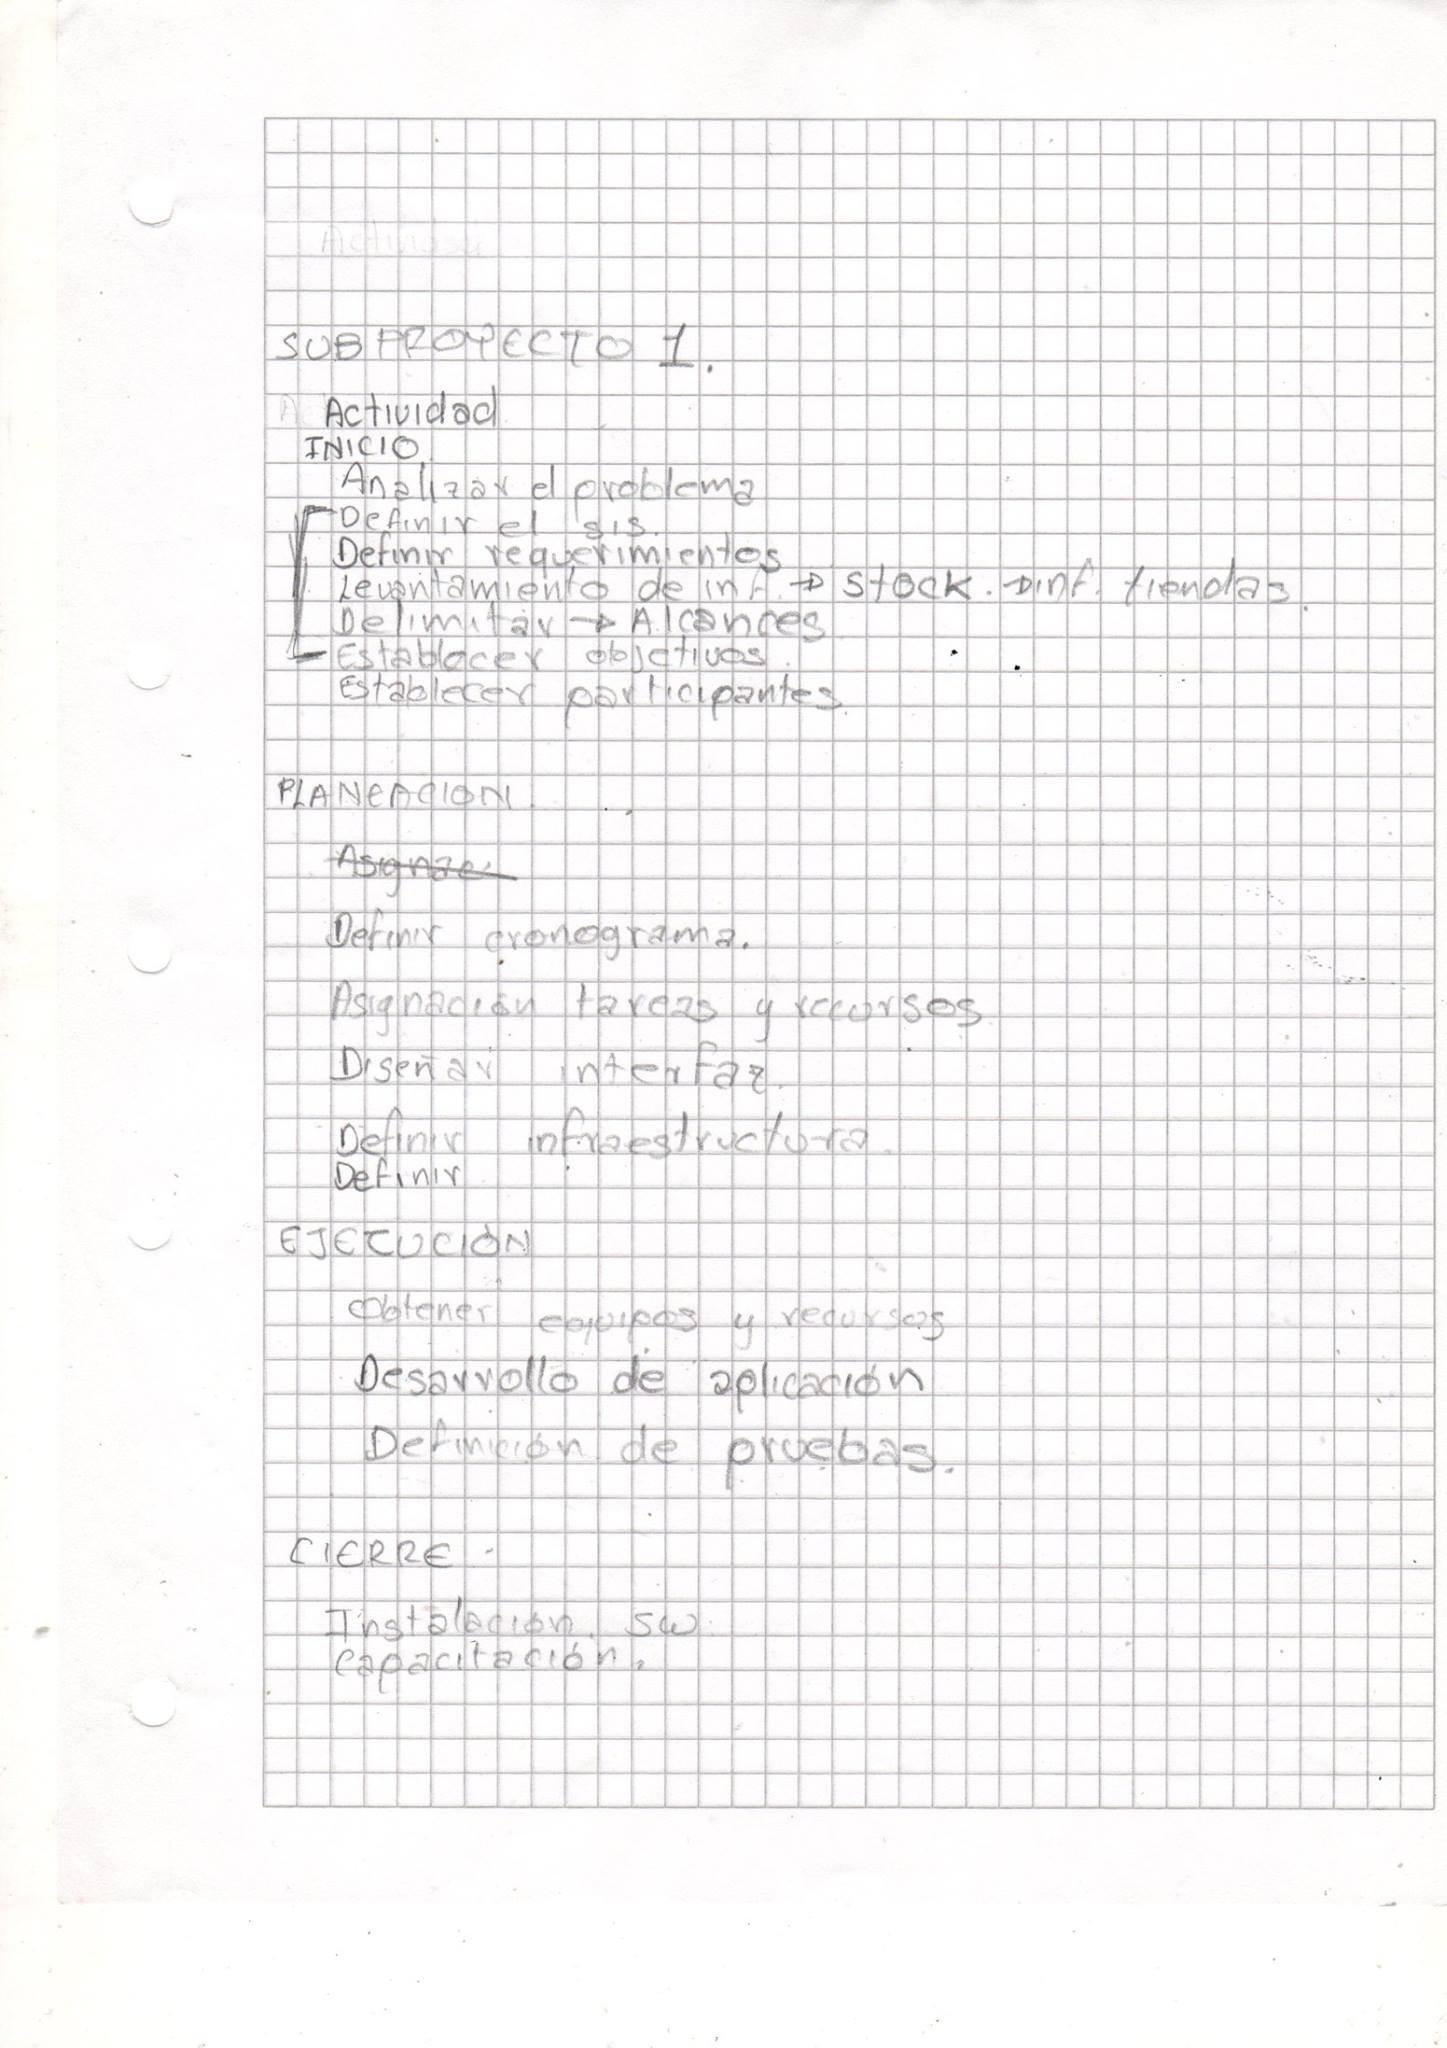 SUBPROYECTO 1.
Actividad
INICIO
Analizar el problema
Definir el sis.
Definir requerimientos
Levantamiento de inf. → stock. → inf. tiendas.
Delimitar → Alcances
Establecer objetivos.
Establecer participantes.
PLANEACION.
Definir cronograma.
Asignación tareas y recursos
Diseñar interfaz.
Definir infraestructura.
Definir
EJECUCIÓN
Obtener equipos y recursos
Desarrollo de aplicación
Definición de pruebas.
CIERRE.
Instalación. sw.
capacitación.